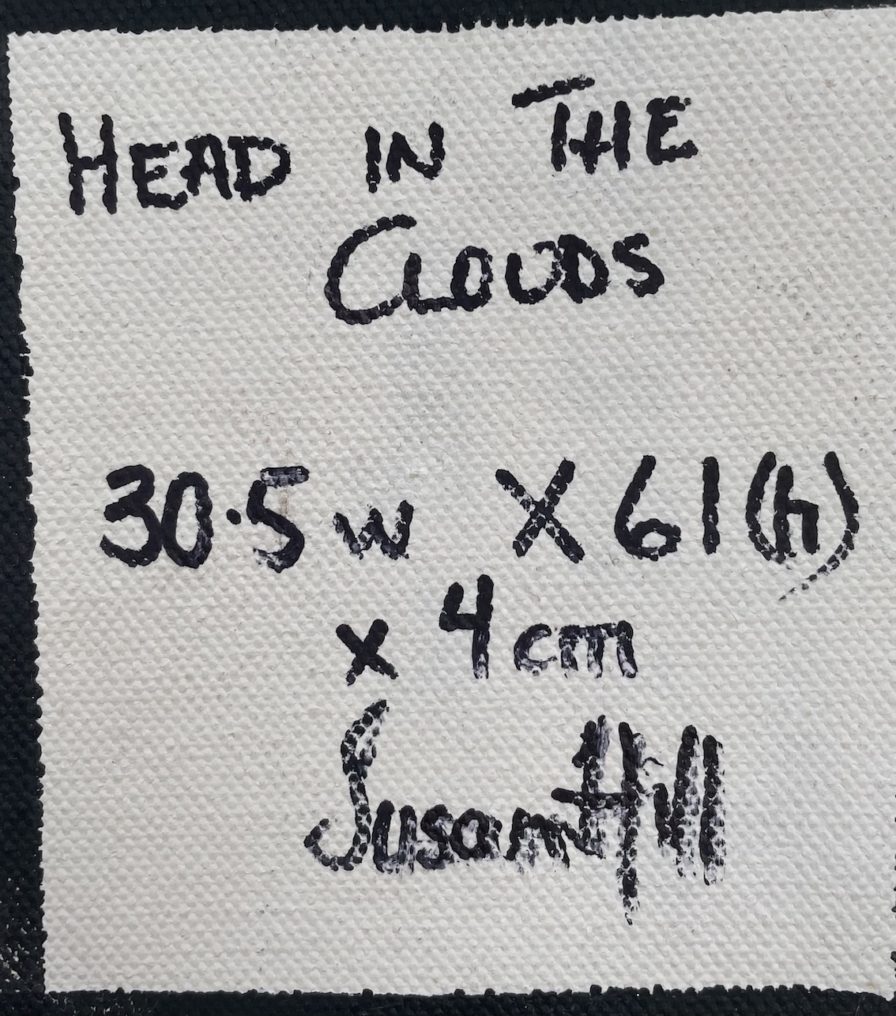 HEAD IN THE
CLOUDS
30.5 w X 61 (h)
x 4 cm
Susan Hill